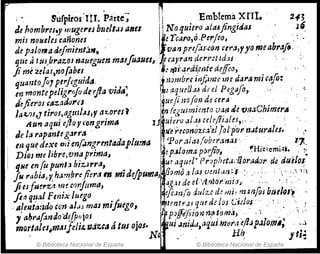 Suspiros III. Parte;
de hombres, y mugeres bueltas antes
mis nouelos cañones
de paloma desmientan,
que à tus brazos naueguen mas suaues,
si mè zelas, no sabes
quanto soy perseguida.
en monte peligroso de esta vida,
de fieros cazadores
lazos, y tiros, aguilas, y azores?
Aun aqui estoy con grima
de la rapante garra
en que dexè mi ensangrentada pluma
Dios me libre, vna prima,
que en su punta bizarra,
su rabia, y hambre fiera en mi despuma,
si es fuerza me consuma,
sea qual Fenix luego
alentando con alas mas mi fuego,
y abrasando despojos
mortales, mas feliz nazca à tus ojos.
Emblema XIII. 243
No quiero alas fingidas 16
de Icaro, ò Perseo,
van presas con cera, y yo me abraso
cayran derretidas
aquellas de el Pegaso,
que si no son de cera
en seguimiento van de vna Chimera
quiero alas celestiales,
te reconozca el Sol por naturales.
Por alas soberanas 17
paloma porfio, Hieremias.
aquel Prophèta llorador de duelos
como à las ventanas
alas de el Amor mio,
descanso dulze de mis mansos buelos
mientras que de los Cielos
possession no tomo,
aqui anida, aqui mora esta paloma,
Hh
y ti
© Biblioteca Nacional de España
© Biblioteca Nacional de España